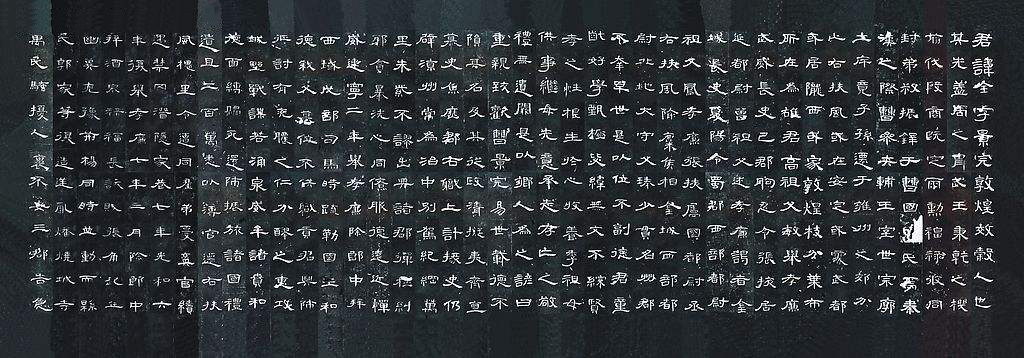 君諱全字景完敦煌效穀人也
其先蓋周之冑武王秉乾之機
翦伐殷商既定爾勳福祿攸同
封弟叔振鐸于曹國因氏焉秦
漢之際曹參夾輔王室世宗廓
土斥竟子孫遷于雍州之郊分
止右扶風或在安定或處武都
或居隴西或家敦煌枝分葉布
所在為雄君高祖父敏舉孝廉
武威長史巴郡朐忍令張掖居
延都尉曾祖父述孝廉謁者金
城長史夏陽令蜀郡西部都尉
祖父鳳孝廉張掖屬國都尉丞
右扶風隃麋侯相金城西部都
尉北地大守父琫少貫名州郡
不幸早世是以位不副德君童
齔好學甄極毖緯無文不綜賢
孝之性根生於心收養季祖母
供事繼母先意承志存亡之敬
禮無遺闕是以鄉人為之諺曰
重親致歡曹景完易世載德不
隕其名及其從政清擬夷齊直
慕史魚歷郡右職上計掾史仍
辟涼州常為治中別駕紀綱萬
里朱紫不謬出典諸郡彈枉糾
邪貪暴洗心同僚服德遠近憚
威建寧二年舉孝廉除郎中拜
西域戊部司馬時疏勒國王和
德弒父篡位不供職貢君興師
征討有吮膿之仁分醪之惠攻
城野戰謀若涌泉威牟諸賁和
德面縛歸死還師振旅諸國禮
遺且二百萬悉以薄官遷右扶
風槐里令遭同產弟憂棄官續
遇禁网潛隱家巷七年光和六
年復舉孝廉七年三月除郎中
拜酒泉祿福長訞賊張角起兵
幽冀兗豫荊楊同時並動而縣
民郭家等復造逆亂燔燒城寺
萬民騷擾人裹不安三郡告急